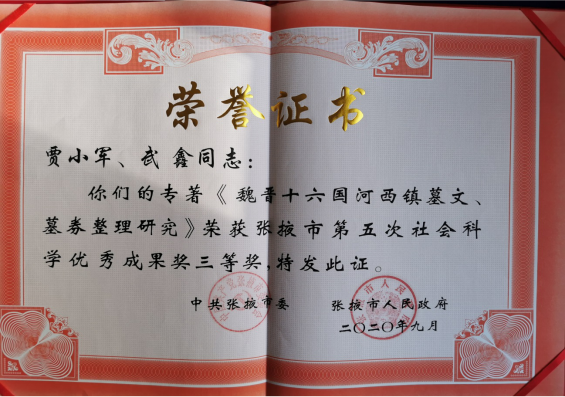 荣誉证书
贾小军、武鑫同志：
你们的专著《魏晋十六国河西镇墓文、
墓券整理研究》荣获张掖市第五次社会科
学优秀成果奖三等奖，特发此证。
中共张掖市委 张掖市人民政府
二〇二〇年九月